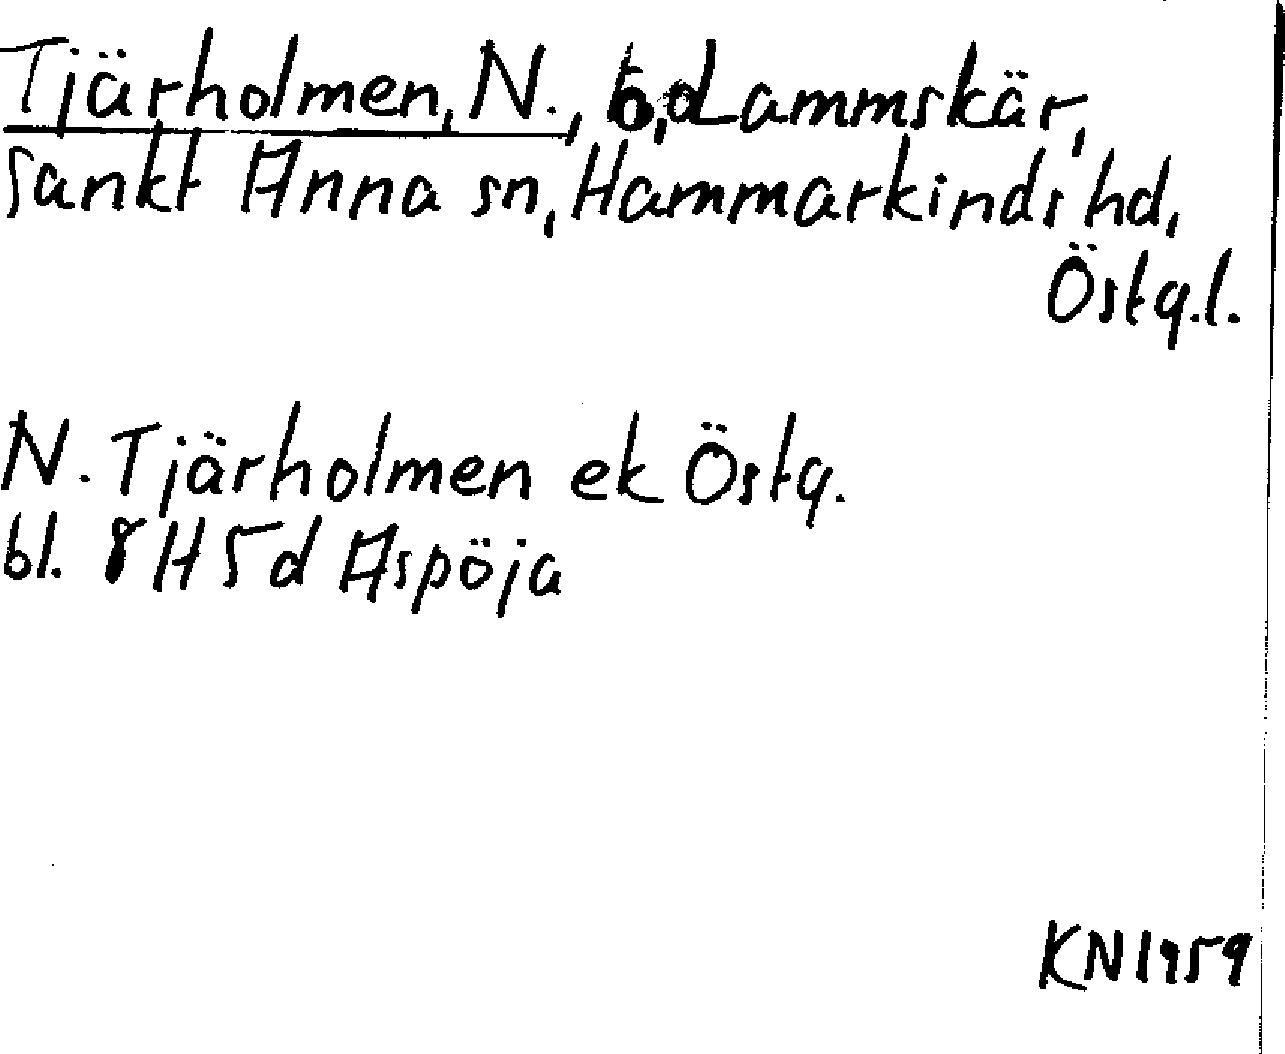 Tjärholmen, N., ö, Lammskär,
Sankt Anna sn, Hammarkinds hd,
Östg.l.
N. Tjärholmen ek Östg.
bl. 8H 5d Aspöja
KN1959